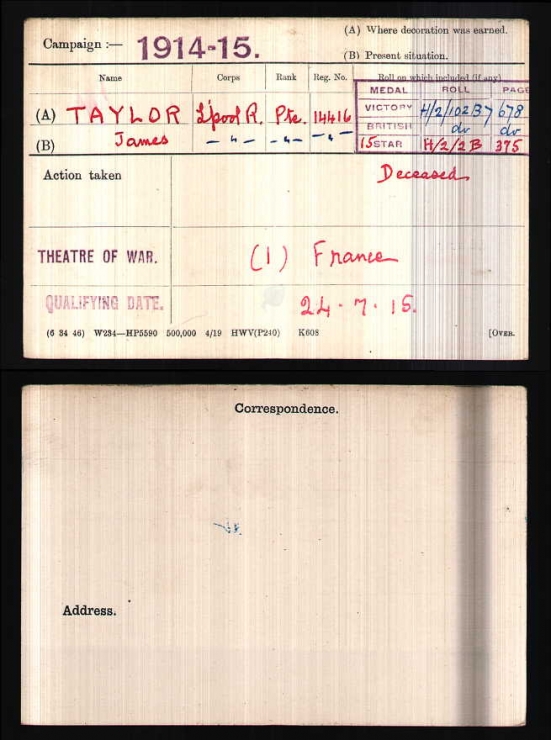 (A) Where decoration was earned.
Campaign :— 1914-15.
(B) Present situation.
Name Corps Rank Reg. No. Roll on which included (if any)
MEDAL ROLL PAGE
(A) TAYLOR L'pool R. Pte. 14416 VICTORY H/2/102B7 678
(B) James — " — — " — — " — BRITISH do do
15 STAR H/2/2B 375
Action taken Deceased
THEATRE OF WAR. (1) France
QUALIFYING DATE. 24.7.15.
(6 34 46) W234—HP5590 500,000 4/19 HWV(P240) K608 [OVER.
Correspondence.
Address.